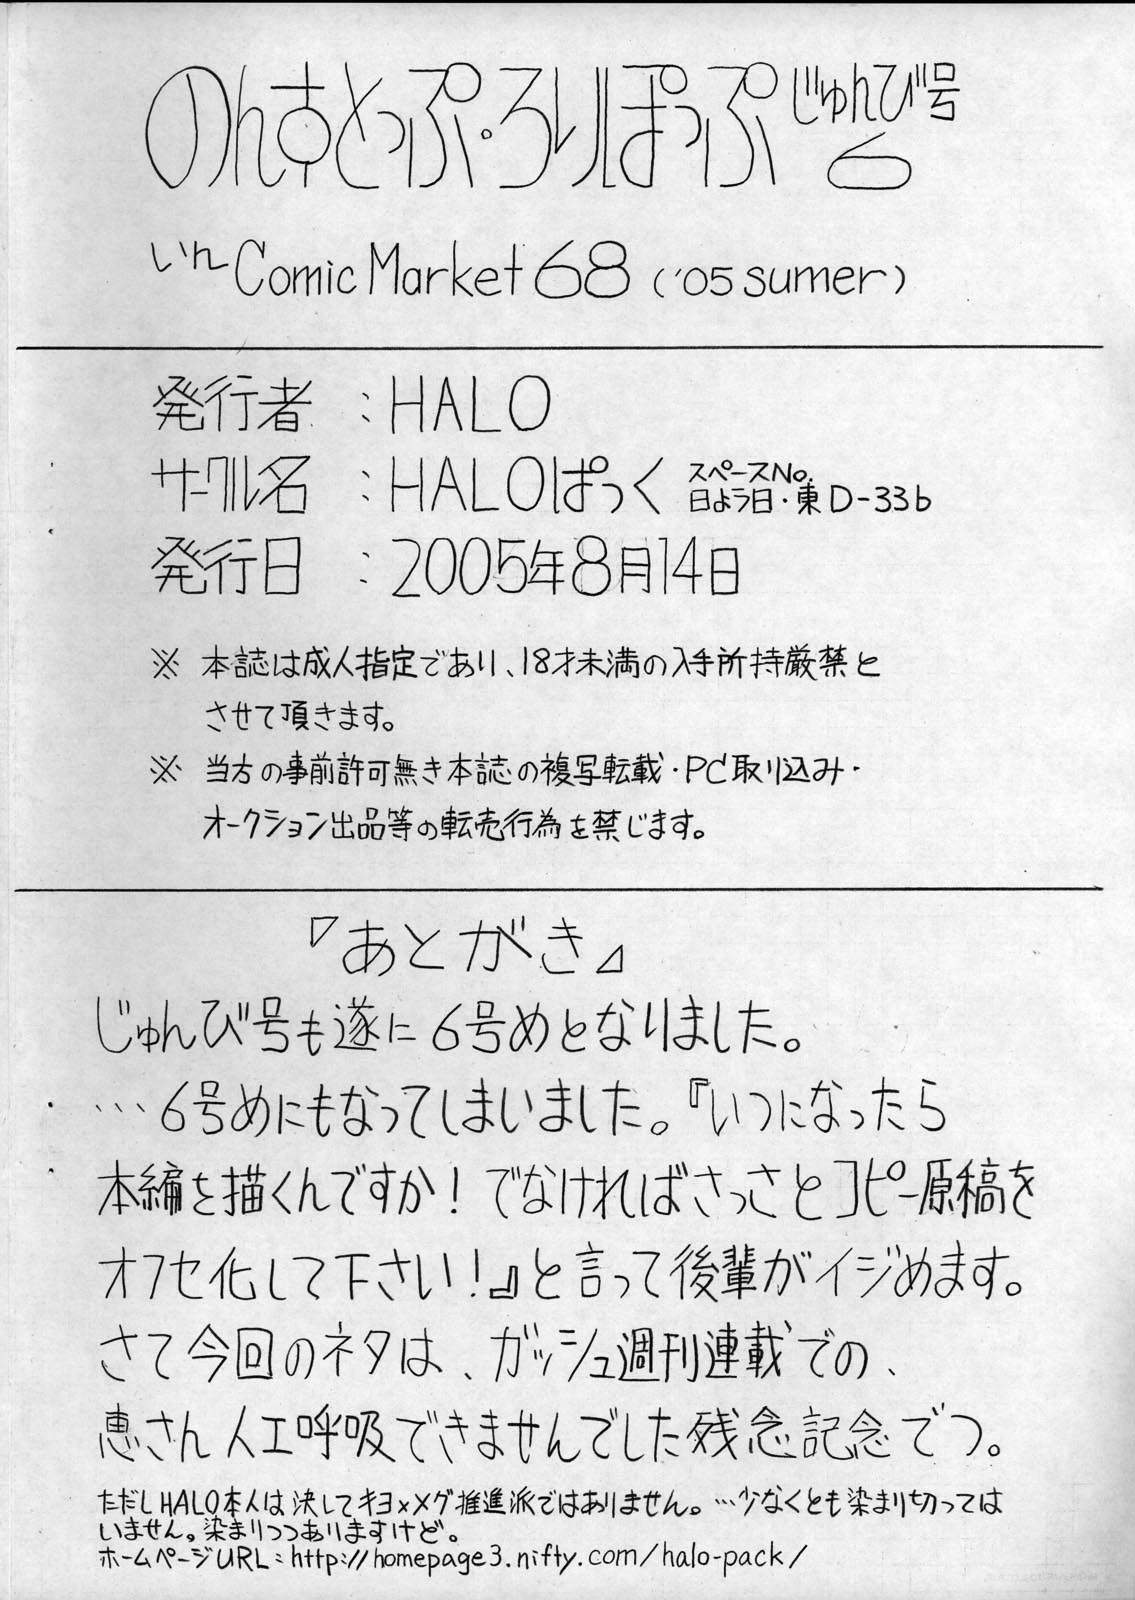 のんすとっぷ・ろりぽっぷ じゅんび号6
いん Comic Market 68 ('05 sumer)
発行者 : HALO
サークル名 : HALOぱっく スペースNo. 日よう日・東D-33b
発行日 : 2005年8月14日
※ 本誌は成人指定であり、18才未満の入手所持厳禁と
させて頂きます。
※ 当方の事前許可無き本誌の複写転載・PC取り込み・
オークション出品等の転売行為を禁じます。
『あとがき』
じゅんび号も遂に6号めとなりました。
…6号めにもなってしまいました。『いつになったら
本編を描くんですか！でなければさっさとコピー原稿を
オフセ化して下さい！』と言って後輩がイジめます。
さて今回のネタは、ガッシュ週刊連載での、
恵さん人工呼吸できませんでした残念記念でつ。
ただしHALO本人は決してキヨ×メグ推進派ではありません。…少なくとも染まり切っては
いません。染まりつつありますけど。
ホームページURL：http://homepage3.nifty.com/halo-pack/